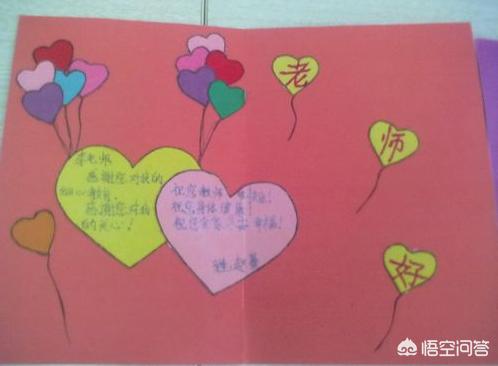 李老师
感谢您对我的
细心教育。
感谢您对我
的关心！
祝您教师节快乐！
祝您身体健康！
祝您全家 幸福！
老
师
好
悟空问答